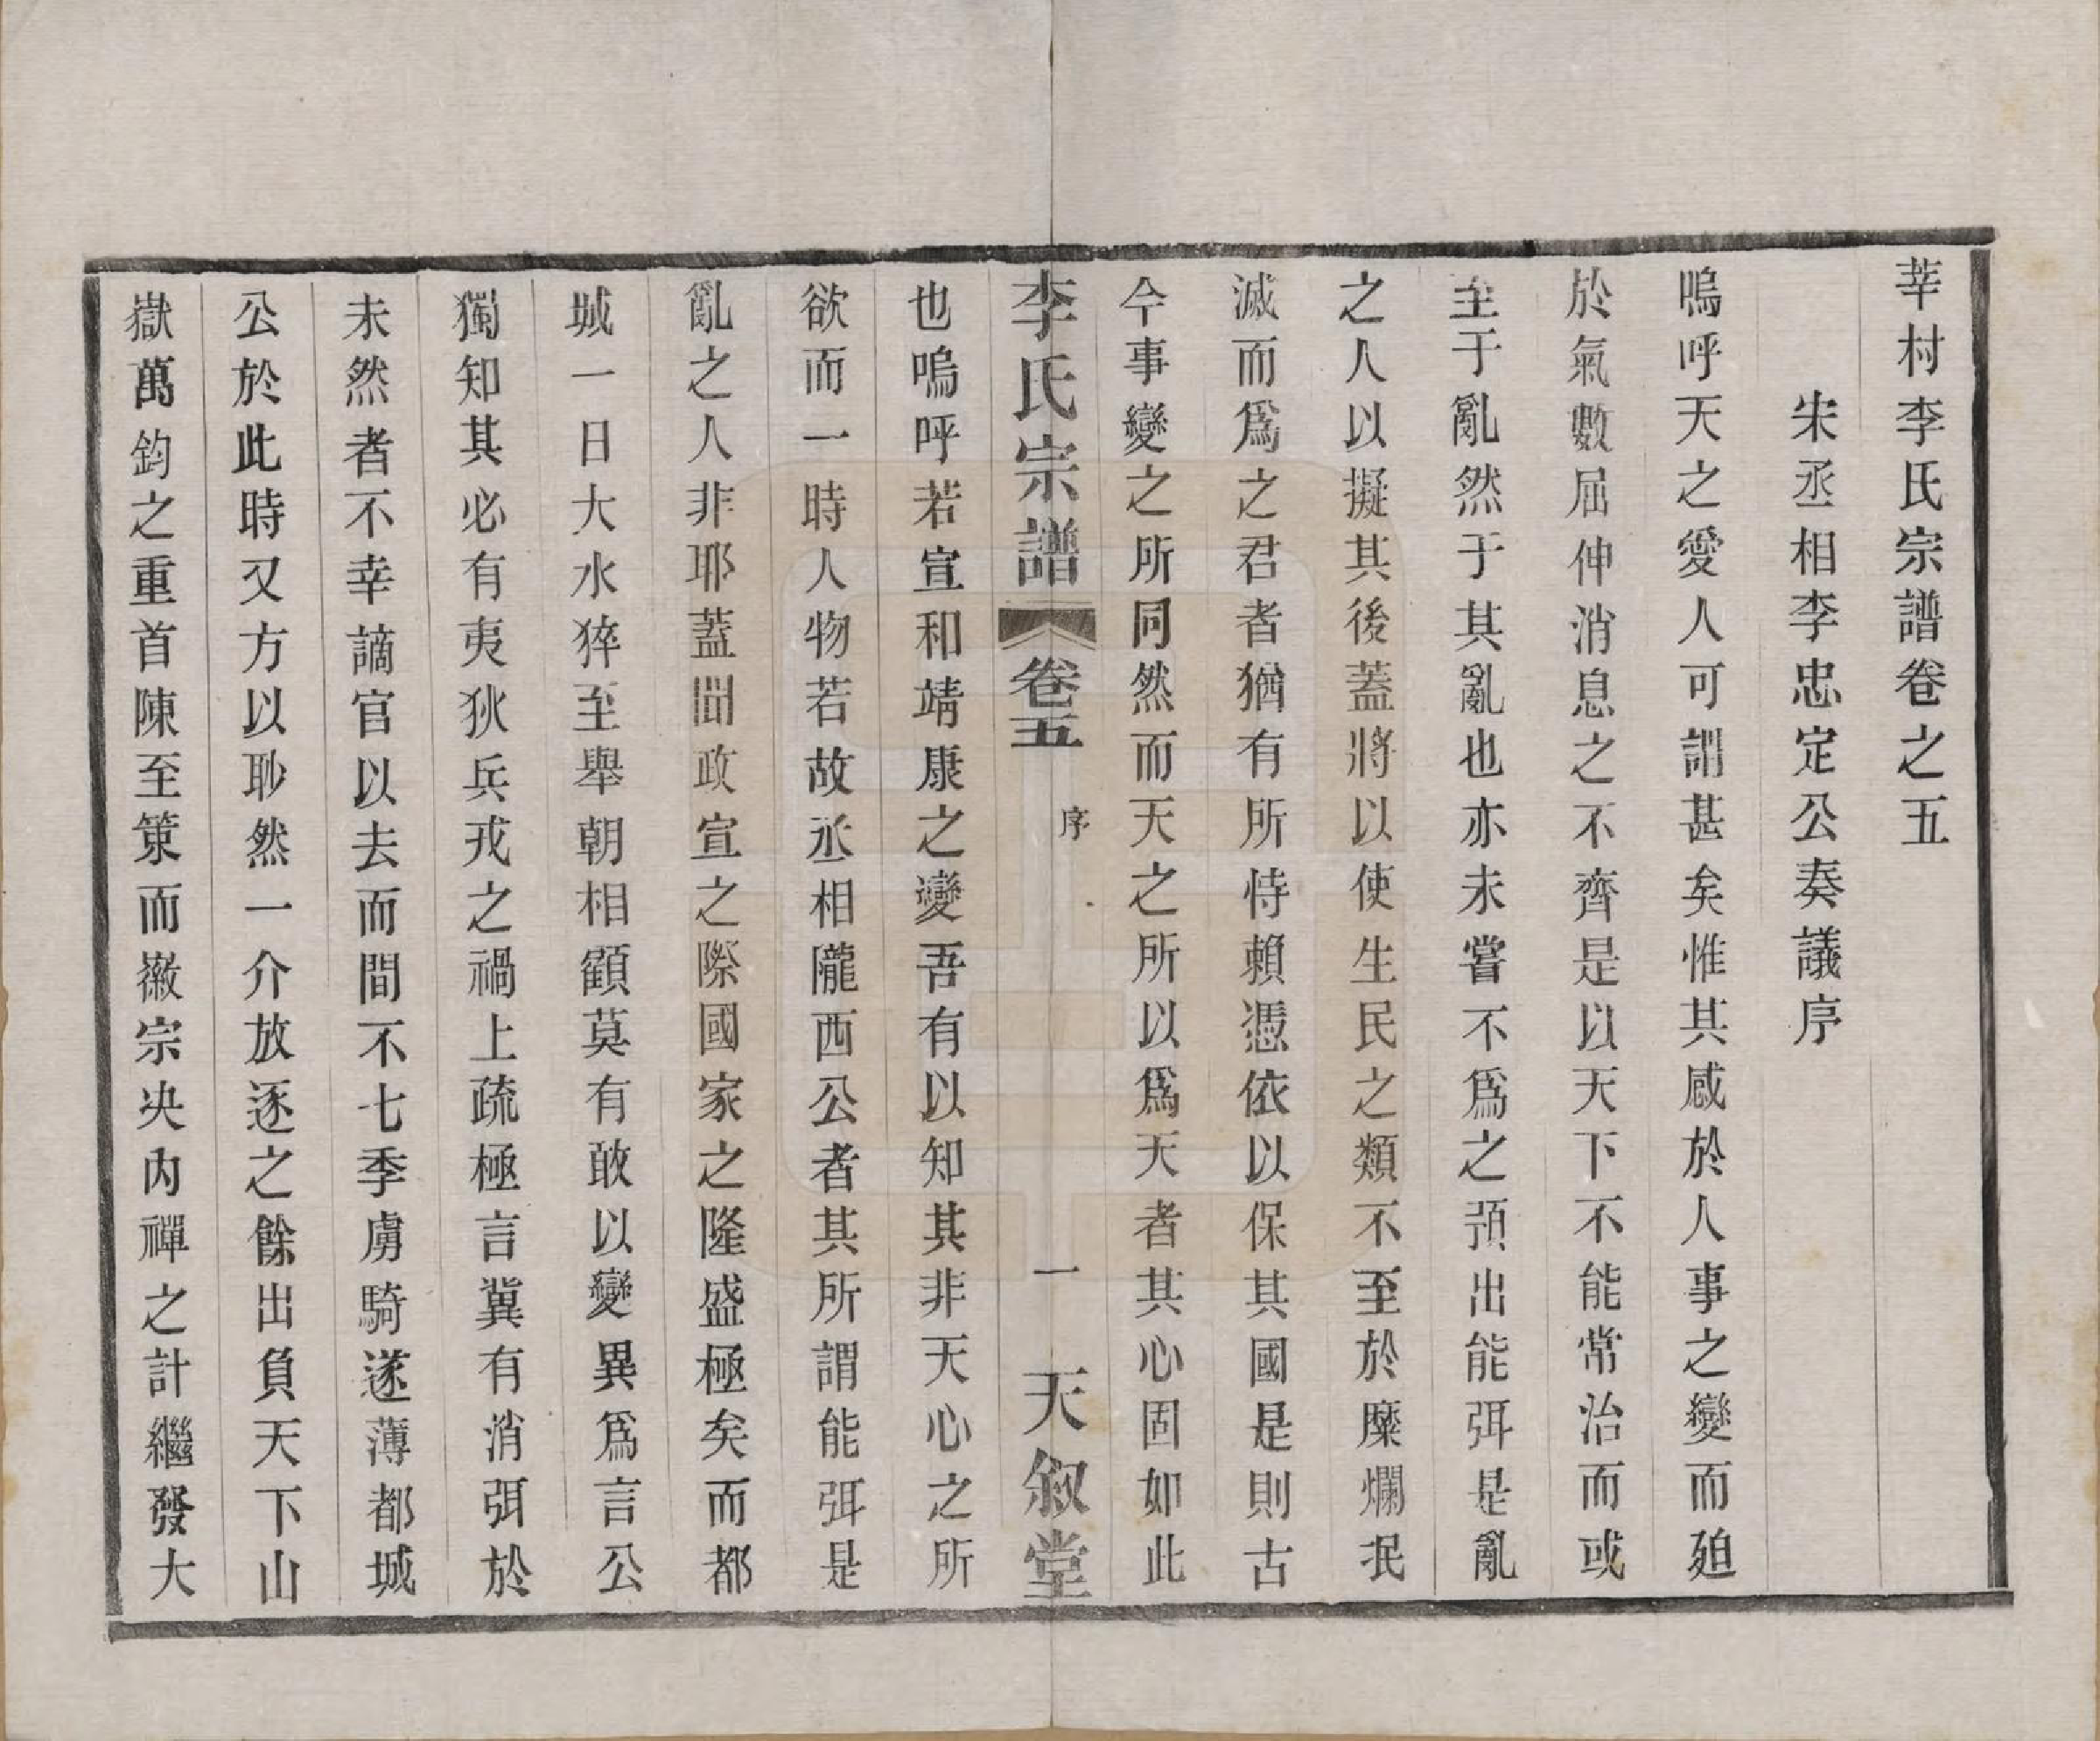 莘村李氏宗譜卷之五
宋丞相李忠定公奏議序
嗚呼天之愛人可謂甚矣惟其感於人事之變而廹
於氣數屈伸消息之不齊是以天下不能常治而或
至于亂然于其亂也亦未嘗不爲之預出能弭是亂
之人以擬其後蓋將以使生民之類不至於糜爛泯
滅而爲之君者猶有所恃賴憑依以保其國是則古
今事變之所同然而天之所以爲天者其心固如此
李氏宗譜 卷五 序 一 天敘堂
也嗚呼若宣和靖康之變吾有以知其非天心之所
欲而一時人物若故丞相隴西公者其所謂能弭是
亂之人非耶蓋聞政宣之際國家之隆盛極矣而都
城一日大水猝至舉朝相顧莫有敢以變異爲言公
獨知其必有夷狄兵戎之禍上疏極言冀有消弭於
未然者不幸謫官以去而間不七季虜騎遂薄都城
公於此時又方以眇然一介放逐之餘出負天下山
嶽萬鈞之重首陳至策而徽宗决內禪之計繼發大